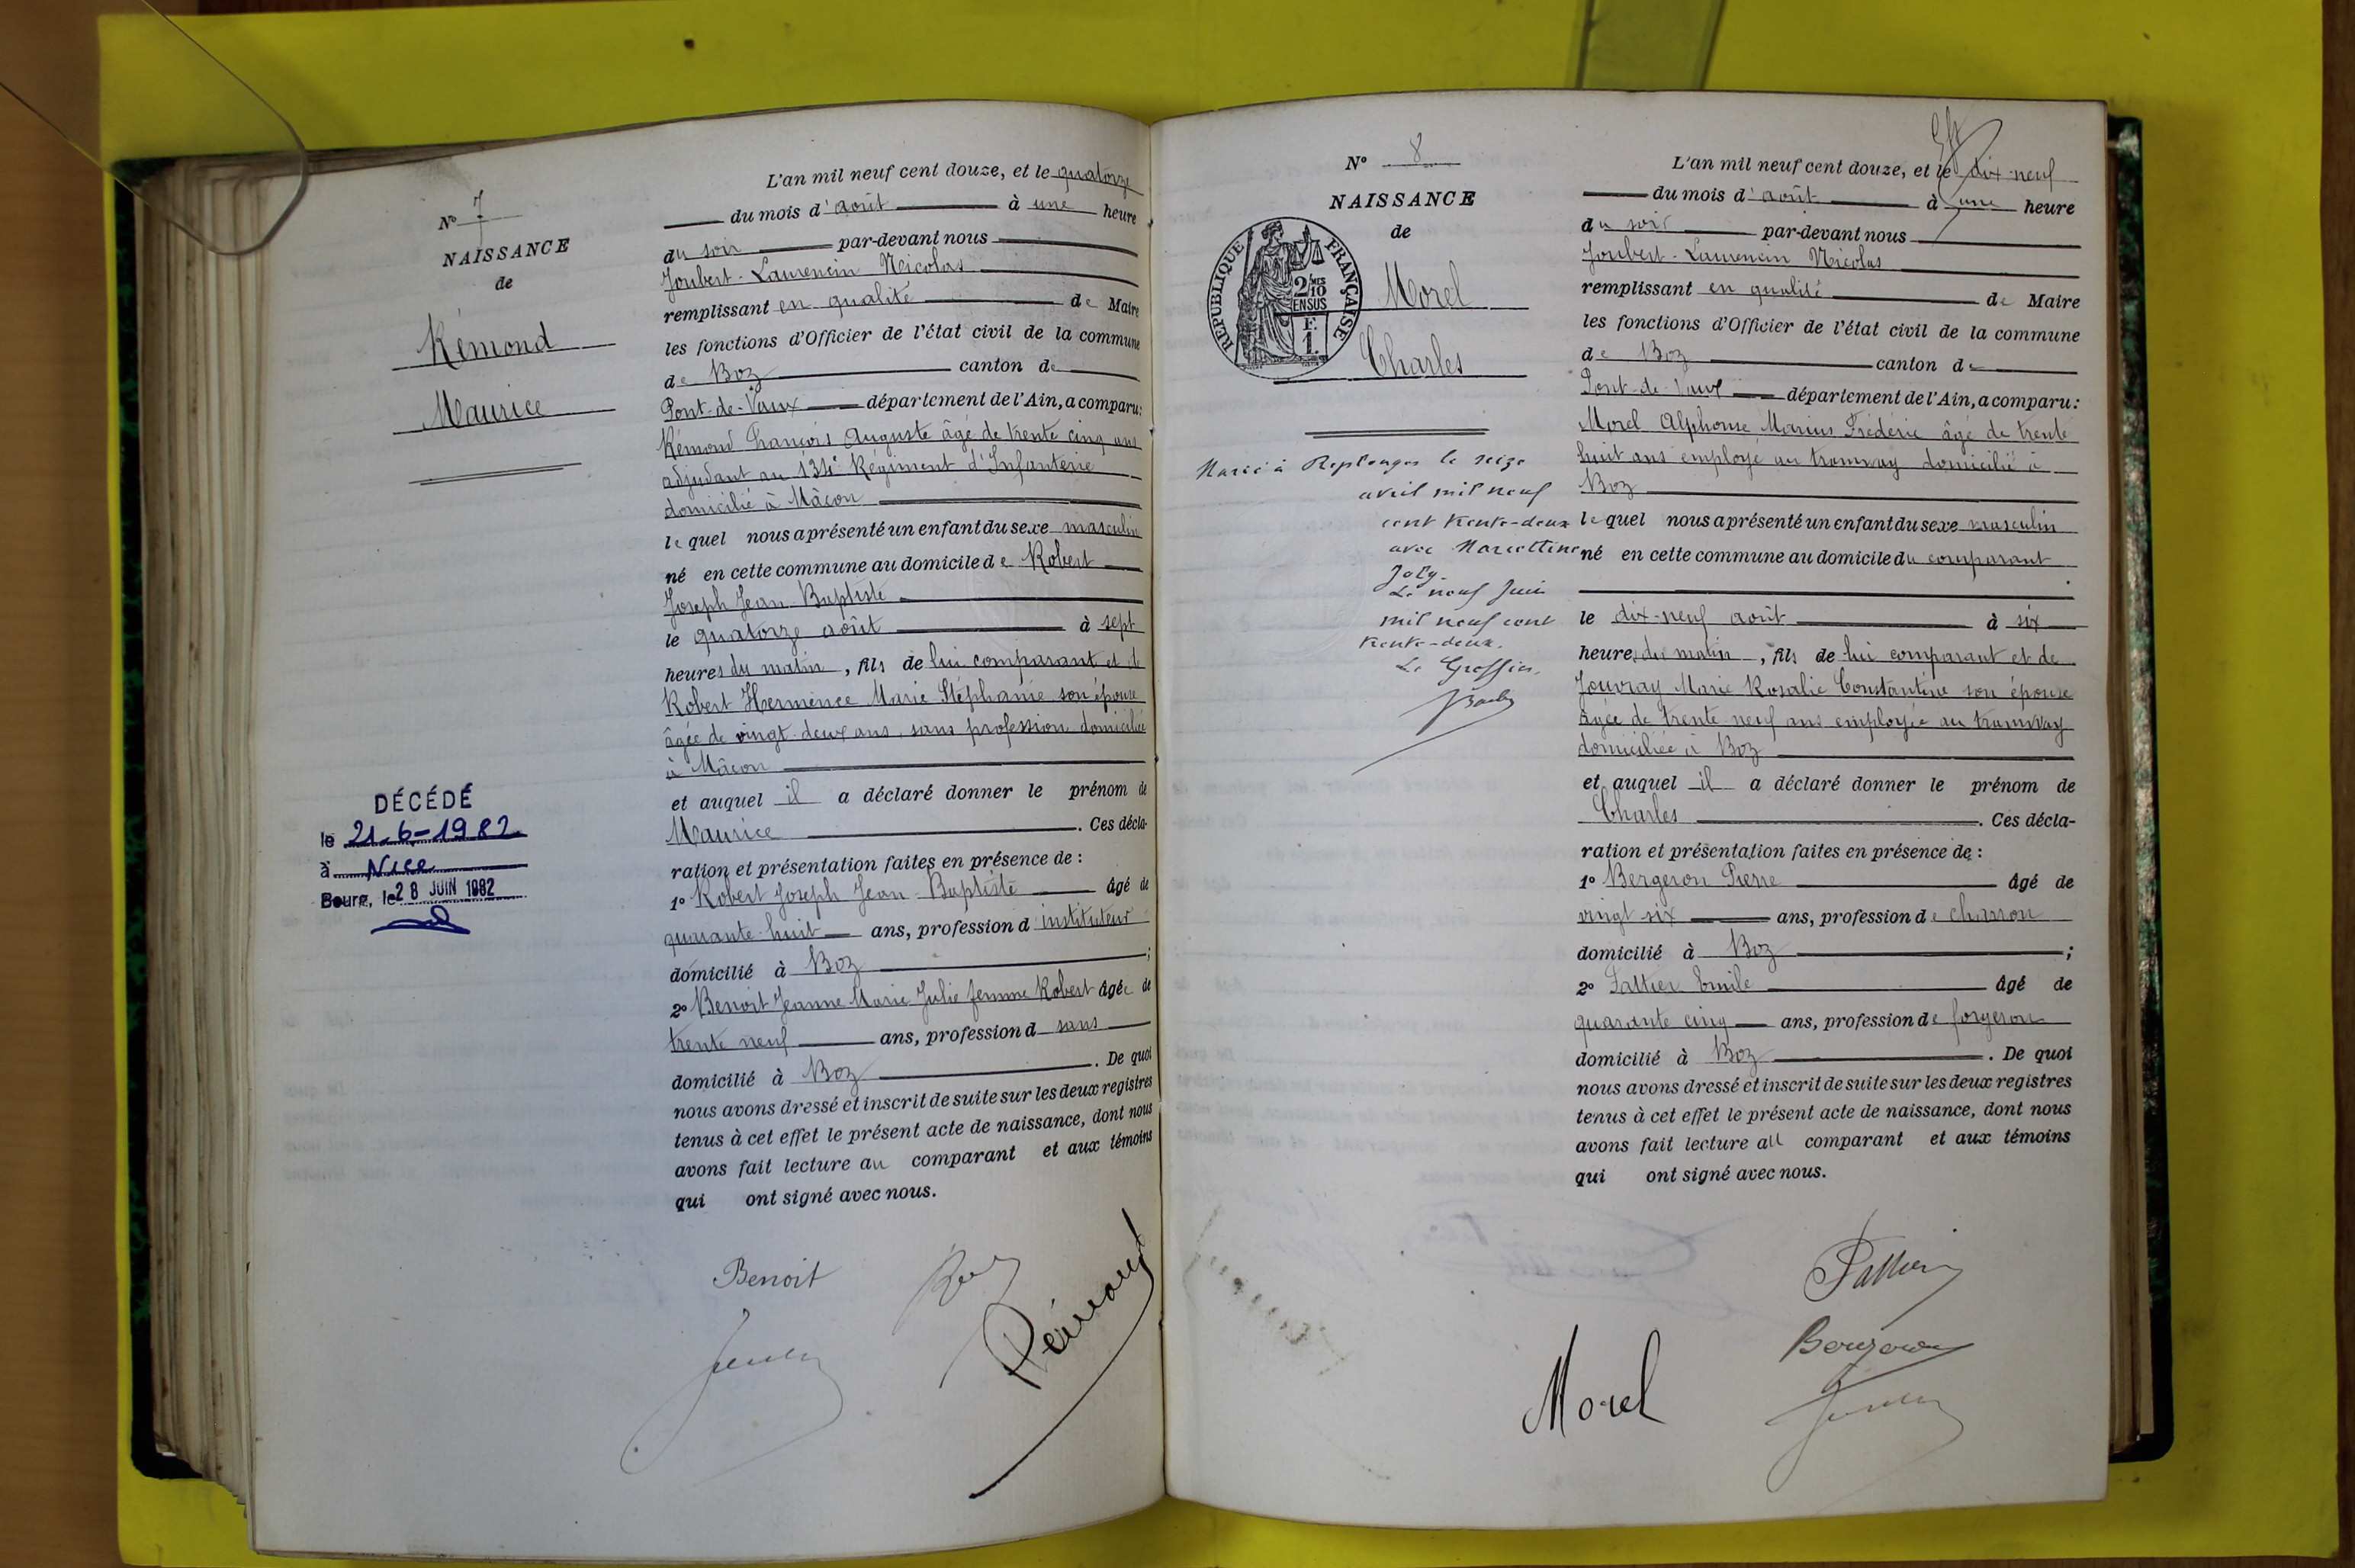 N° 7
NAISSANCE
de
Rémond
Maurice
DÉCÉDÉ
le 21-6-1982
à Nice
Bourg, le 28 JUIN 1982
L'an mil neuf cent douze, et le quatorze
du mois d'août à une heure
du soir par-devant nous
Joubert-Laurencin Nicolas
remplissant en qualité de Maire
les fonctions d'Officier de l'état civil de la commune
de Boz canton de
Pont-de-Vaux département de l'Ain, a comparu:
Rémond François Auguste âgé de trente cinq ans
adjudant au 134e Régiment d'Infanterie
domicilié à Mâcon
le quel nous a présenté un enfant du sexe masculin
né en cette commune au domicile de Robert
Joseph Jean Baptiste
le quatorze août à sept
heures du matin, fils de lui comparant et de
Robert Hermence Marie Stéphanie son épouse
âgée de vingt-deux ans sans profession domiciliée
à Mâcon
et auquel il a déclaré donner le prénom de
Maurice. Ces décla-
ration et présentation faites en présence de :
1° Robert Joseph Jean-Baptiste âgé de
quarante-huit ans, profession d instituteur
domicilié à Boz ;
2° Benoit Jeanne Marie Julie femme Robert âgée de
trente neuf ans, profession d sans
domicilié à Boz. De quoi
nous avons dressé et inscrit de suite sur les deux registres
tenus à cet effet le présent acte de naissance, dont nous
avons fait lecture au comparant et aux témoins
qui ont signé avec nous.
Benoit
Rémond
N° 8
NAISSANCE
de
RÉPUBLIQUE FRANÇAISE
2/10 MES
EN SUS
F.
1.
Morel
Charles
Marié à Replonges le seize
avril mil neuf
cent trente-deux
avec Marcelline
Joly.
Le neuf Juin
mil neuf cent
trente-deux.
Le Greffier,
L'an mil neuf cent douze, et le dix-neuf
du mois d'août à une heure
du soir par-devant nous
Joubert-Laurencin Nicolas
remplissant en qualité de Maire
les fonctions d'Officier de l'état civil de la commune
de Boz canton de
Pont-de-Vaux département de l'Ain, a comparu:
Morel Alphonse Marius Frédéric âgé de trente
huit ans employé au tramway domicilié à
Boz
le quel nous a présenté un enfant du sexe masculin
né en cette commune au domicile du comparant
le dix-neuf août à six
heures du matin, fils de lui comparant et de
Jouvray Marie Rosalie Constantine son épouse
âgée de trente-neuf ans employée au tramway
domiciliée à Boz
et auquel il a déclaré donner le prénom de
Charles. Ces décla-
ration et présentation faites en présence de :
1° Bergeron Pierre âgé de
vingt six ans, profession de charron
domicilié à Boz ;
2° Emile âgé de
quarante cinq ans, profession de forgeron
domicilié à Boz. De quoi
nous avons dressé et inscrit de suite sur les deux registres
tenus à cet effet le présent acte de naissance, dont nous
avons fait lecture au comparant et aux témoins
qui ont signé avec nous.
Morel